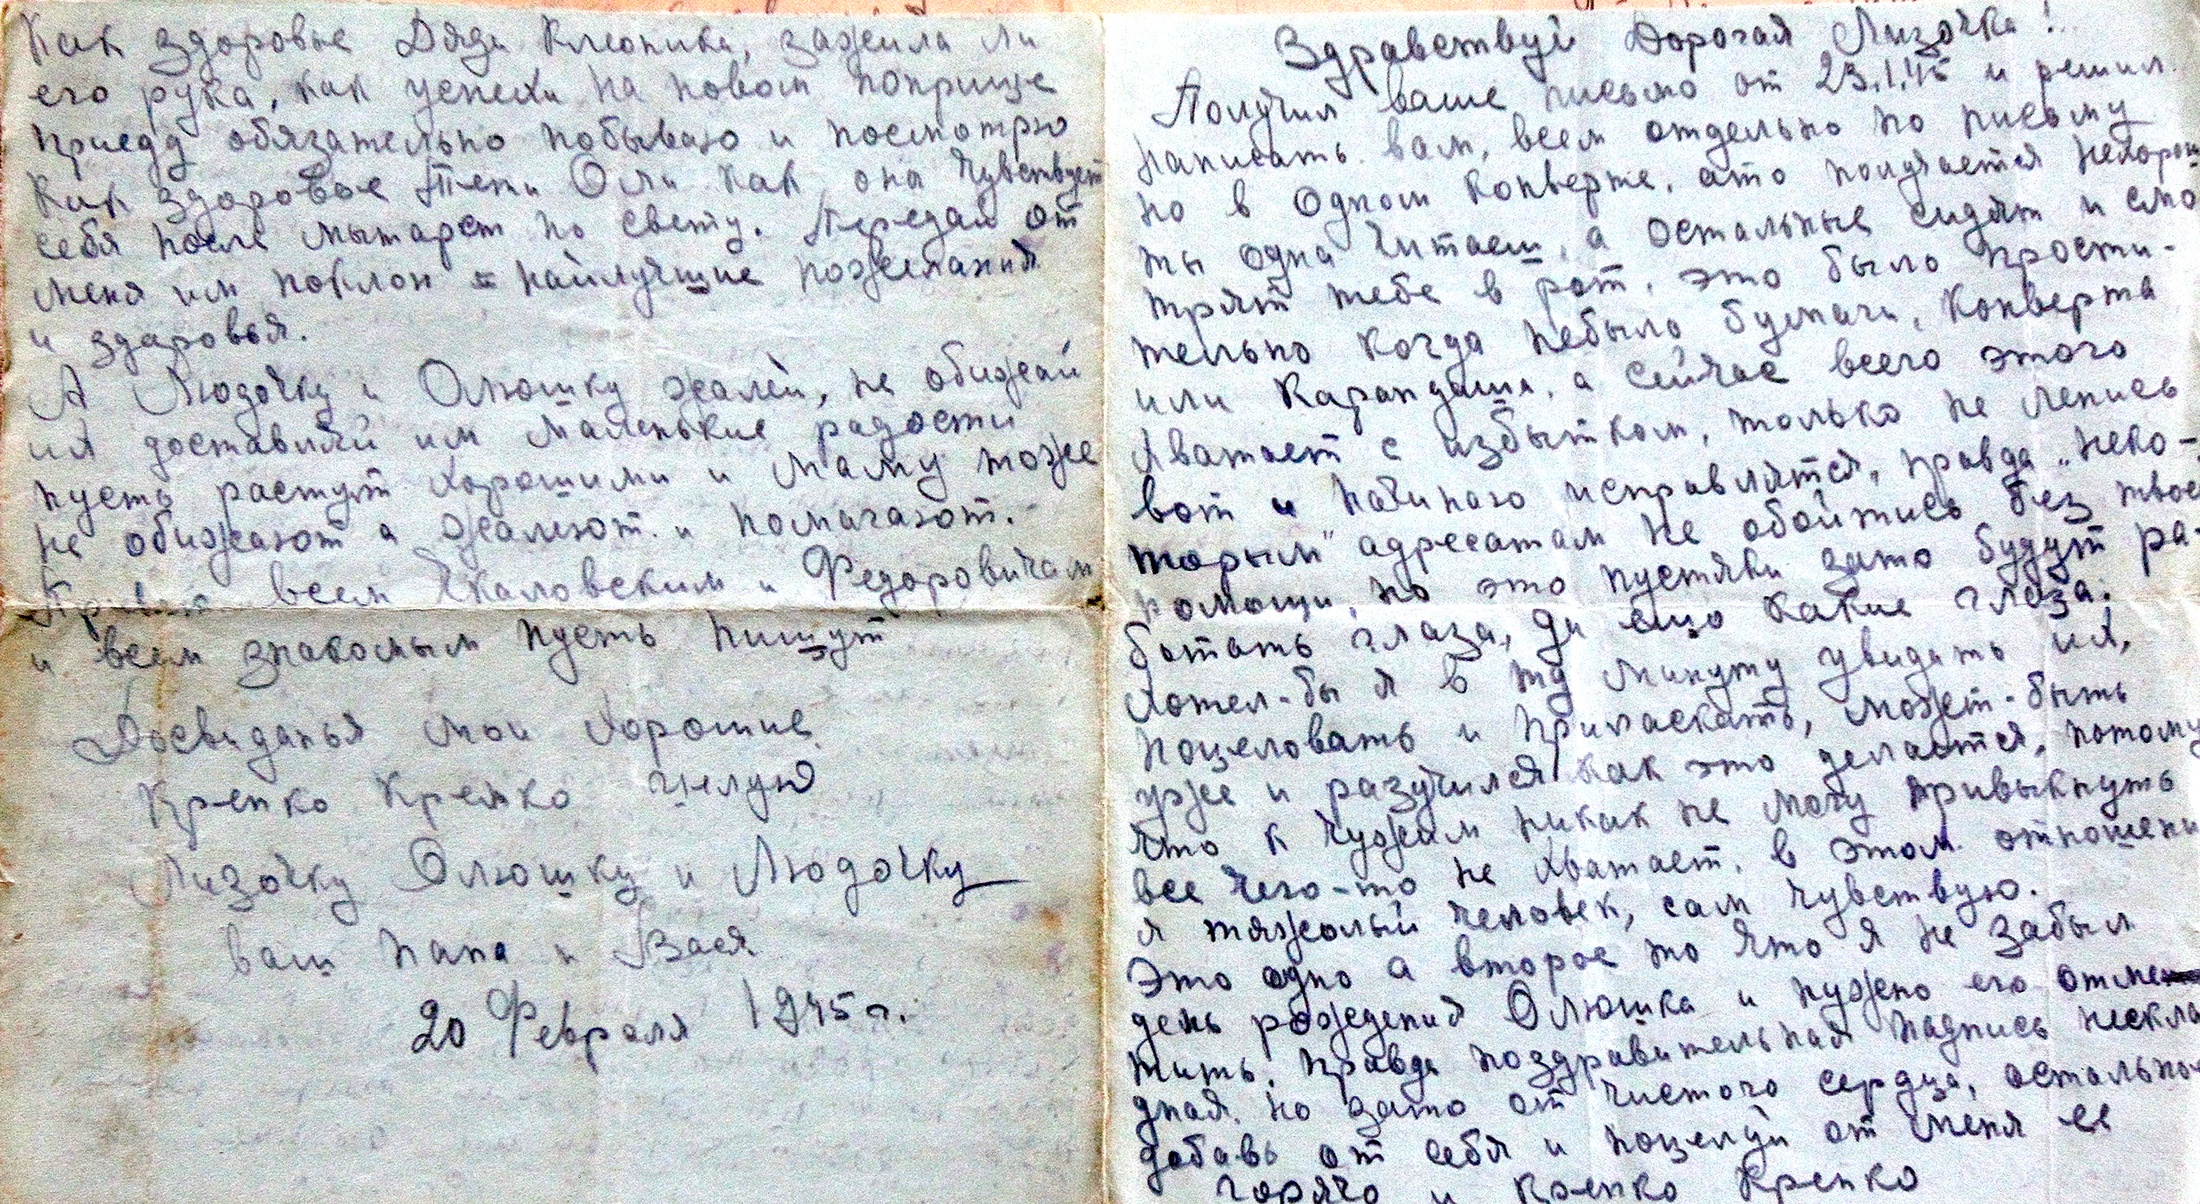 Здравствуй Дорогая Лизочка!
Получил ваше письмо от 23.1.45 и решил
написать вам, всем отдельно по письму
но в одном конверте, ато получается нехорош
ты одна читаеш, а остальные сидят и смо
трят тебе в рот, это было прости-
тельно когда небыло бумаги, конверта
или карандаша, а сейчас всего этого
хватает с избытком, только не ленись
вот и начинаю исправлятся, правда „неко-
торым" адресатам не обойтись без твоей
помощи, но это пустяки зато будут ра-
ботать глаза, да ещо какие глаза.
Хотел-бы я в ту минуту увидать их,
поцеловать и приласкать, может-быть
уже и разучился как это делается, потому
что к чужим никак не могу привыкнуть
все чего-то не хватает, в этом отношени
я тяжолый человек, сам чувствую.
Это одно а второе то что я не забыл
день рождения Олюшка и нужно его отме
тить, правда поздравительная надпись нескла
дная, но зато от чистого сердца, остальное
добавь от себя и поцелуй от меня ее
горячо и крепко крепко
Как здоровье Дяди зажила ли
его рука, как успехи на новом поприще
приеду обязательно побываю и посмотрю
Как здоровье Тети Оли как она чувствует
себя после мытарст по свету. Передай от
меня им поклон наилучшие пожелания
и здаровья.
А Людочку и Олюшку жалей, не обижай
их доставляй им маленькие радости
пусть растут хорошими и маму тоже
не обижают а жалеют и помагают.
Привет всем Чкаловским и Федоровичам
и всем знакомым пусть пишут
Досвиданья мои хорошие
Крепко крепко целую
Лизочку Олюшку и Людочку
ваш папа и Вася
20 Февраля 1945 г.